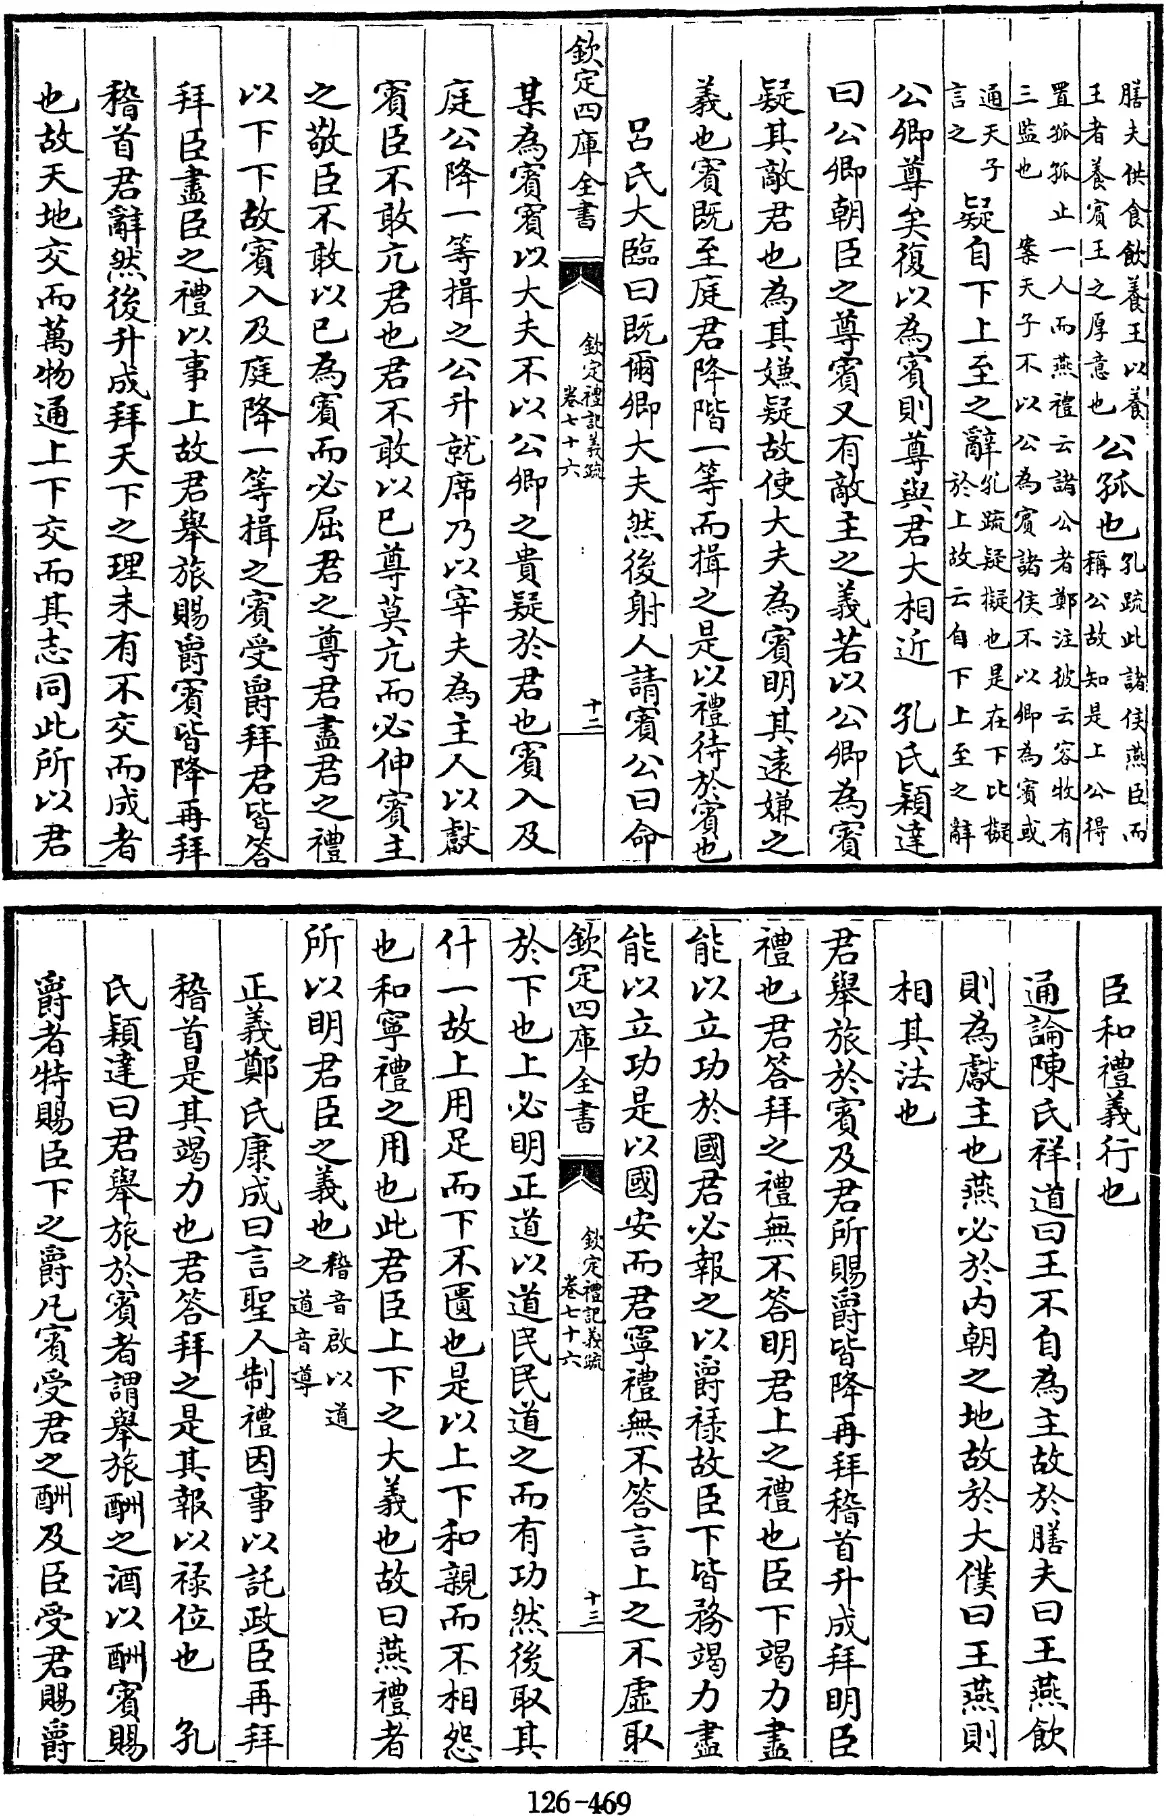 膳夫供食飲養王以養
王者養賓王之厚意也
公孤也
孔疏此諸侯燕臣而
稱公故知是上公得
置孤孤止一人而燕禮云諸公者鄭注彼云容牧有
三監也　案天子不以公為賓諸侯不以卿為賓或
通天子
言之
疑自下上至之辭
孔疏疑擬也是在下比擬
於上故云自下上至之辭
公卿尊矣復以為賓則尊與君大相近　孔氏穎達
曰公卿朝臣之尊賓又有敵主之義若以公卿為賓
疑其敵君也為其嫌疑故使大夫為賓明其遠嫌之
義也賓既至庭君降階一等而揖之是以禮待於賓也
呂氏大臨曰既爾卿大夫然後射人請賓公曰命
欽定四庫全書
欽定禮記義疏
卷七十六
十二
某為賓賓以大夫不以公卿之貴疑於君也賓入及
庭公降一等揖之公升就席乃以宰夫為主人以獻
賓臣不敢亢君也君不敢以已尊莫亢而必伸賓主
之敬臣不敢以已為賓而必屈君之尊君盡君之禮
以下下故賓入及庭降一等揖之賓受爵拜君皆答
拜臣盡臣之禮以事上故君舉旅賜爵賓皆降再拜
稽首君辭然後升成拜天下之理未有不交而成者
也故天地交而萬物通上下交而其志同此所以君
臣和禮義行也
通論陳氏祥道曰王不自為主故於膳夫曰王燕飲
則為獻主也燕必於内朝之地故於大僕曰王燕則
相其法也
君舉旅於賓及君所賜爵皆降再拜稽首升成拜明臣
禮也君答拜之禮無不答明君上之禮也臣下竭力盡
能以立功於國君必報之以爵祿故臣下皆務竭力盡
能以立功是以國安而君寧禮無不答言上之不虛取
欽定四庫全書
欽定禮記義疏
卷七十六
十三
於下也上必明正道以道民民道之而有功然後取其
什一故上用足而下不匱也是以上下和親而不相怨
也和寧禮之用也此君臣上下之大義也故曰燕禮者
所以明君臣之義也
稽音啟以道
之道音導
正義鄭氏康成曰言聖人制禮因事以託政臣再拜
稽首是其竭力也君答拜之是其報以祿位也　孔
氏穎達曰君舉旅於賓者謂舉旅酬之酒以酬賓賜
爵者特賜臣下之爵凡賓受君之酬及臣受君賜爵
126-469